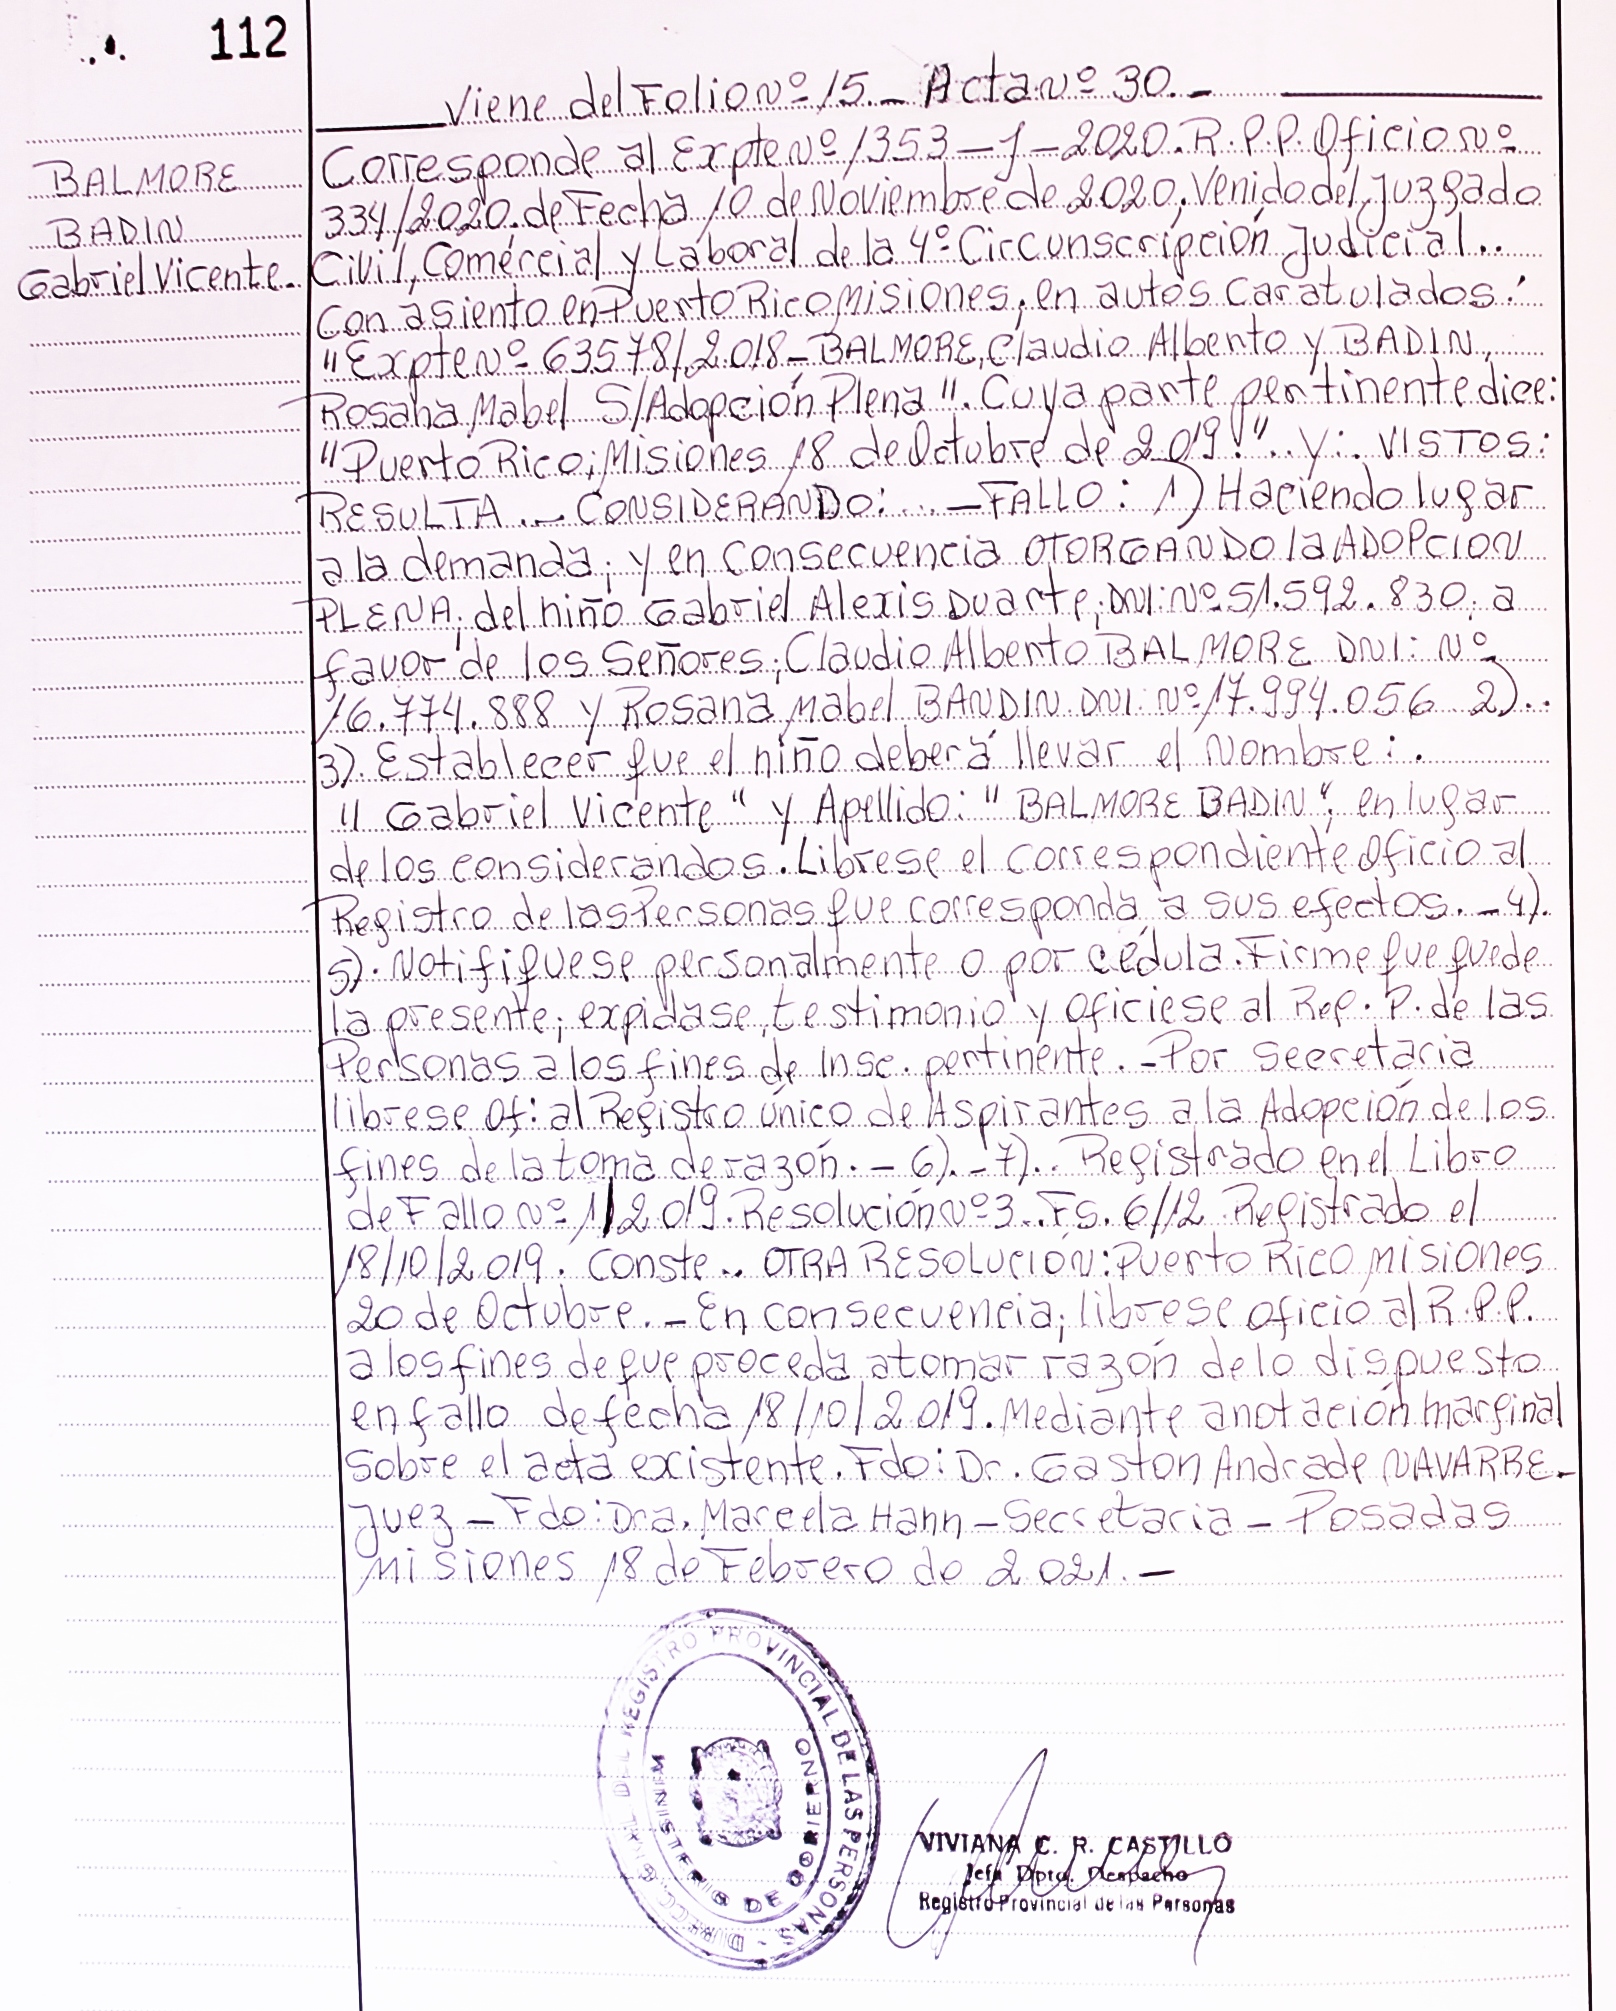 112
Viene del Folio Nº 15._ Acta Nº 30._
BALMORE
BADIN
Gabriel Vicente.
Corresponde al Expte Nº 1353_J_2020. R.P.P. Oficio Nº
334/2020. de Fecha 10 de Noviembre de 2020, Venido del Juzgado
Civil, Comércial y Laboral de la 4º Circunscripción Judicial..
Con asiento en Puerto Rico Misiones; en autos Caratulados:
"Expte Nº 63578/2018_BALMORE, Claudio Alberto y BADIN,
Rosana Mabel S/Adopción Plena". Cuya parte pertinente dice:
"Puerto Rico; Misiones 18 de Octubre de 2019."..Y:. VISTOS:
RESULTA ._ CONSIDERANDO:..._FALLO: 1) Haciendo lugar
a la demanda; y en Consecuencia OTORGANDO la ADOPCION
PLENA; del niño Gabriel Alexis Duarte; DNI: Nº 51.592.830; a
favor de los Señores; Claudio Alberto BALMORE DNI: Nº
16.774.888 y Rosana Mabel BANDIN DNI: Nº 17.994.056 2)..
3). Establecer que el niño deberá llevar el Nombre:.
"Gabriel Vicente" y Apellido: "BALMORE BADIN", en lugar
de los considerandos. Librese el correspondiente Oficio al
Registro de las Personas que corresponda a sus efectos._4).
5). Notifiquese personalmente o por cédula. Firme que quede
la presente; expidase, testimonio y oficiese al Reg. P. de las
Personas a los fines de Insc. pertinente._Por Secretaria
librese Of: al Registro Único de Aspirantes a la Adopción de los
fines de la toma de razón._ 6)._7).. Registrado en el Libro
de Fallo Nº 1/2019. Resolución Nº 3.. Fs. 6/12 Registrado el
18/10/2019. Conste.. OTRA RESOLUCIÓN: Puerto Rico Misiones
20 de Octubre._En consecuencia; librese oficio al R.P.P.
a los fines de que proceda a tomar razón de lo dispuesto
en fallo de fecha 18/10/2019. Mediante anotación marginal
Sobre el acta existente. Fdo: Dr. Gaston Andrade NAVARBE_
Juez _ Fdo: Dra. Marcela Hann _ Secretaria _ Posadas
Misiones 18 de Febrero de 2021._
REGISTRO PROVINCIAL DE LAS PERSONAS
MINISTERIO DE GOBIERNO
VIVIANA C. R. CASTILLO
Jefa Dpto. Despacho
Registro Provincial de las Personas